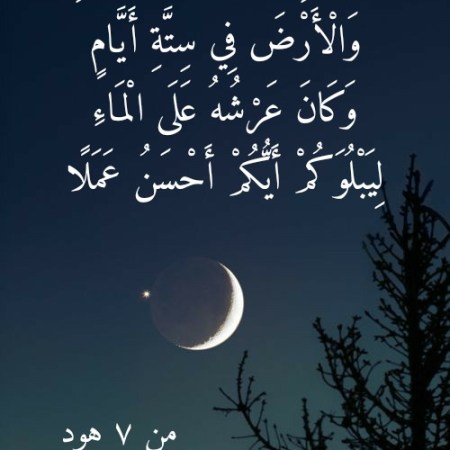 وَالْأَرْضَ فِي سِتَّةِ أَيَّامٍ
وَكَانَ عَرْشُهُ عَلَى الْمَاءِ
لِيَبْلُوَكُمْ أَيُّكُمْ أَحْسَنُ عَمَلًا
من ٧ هود